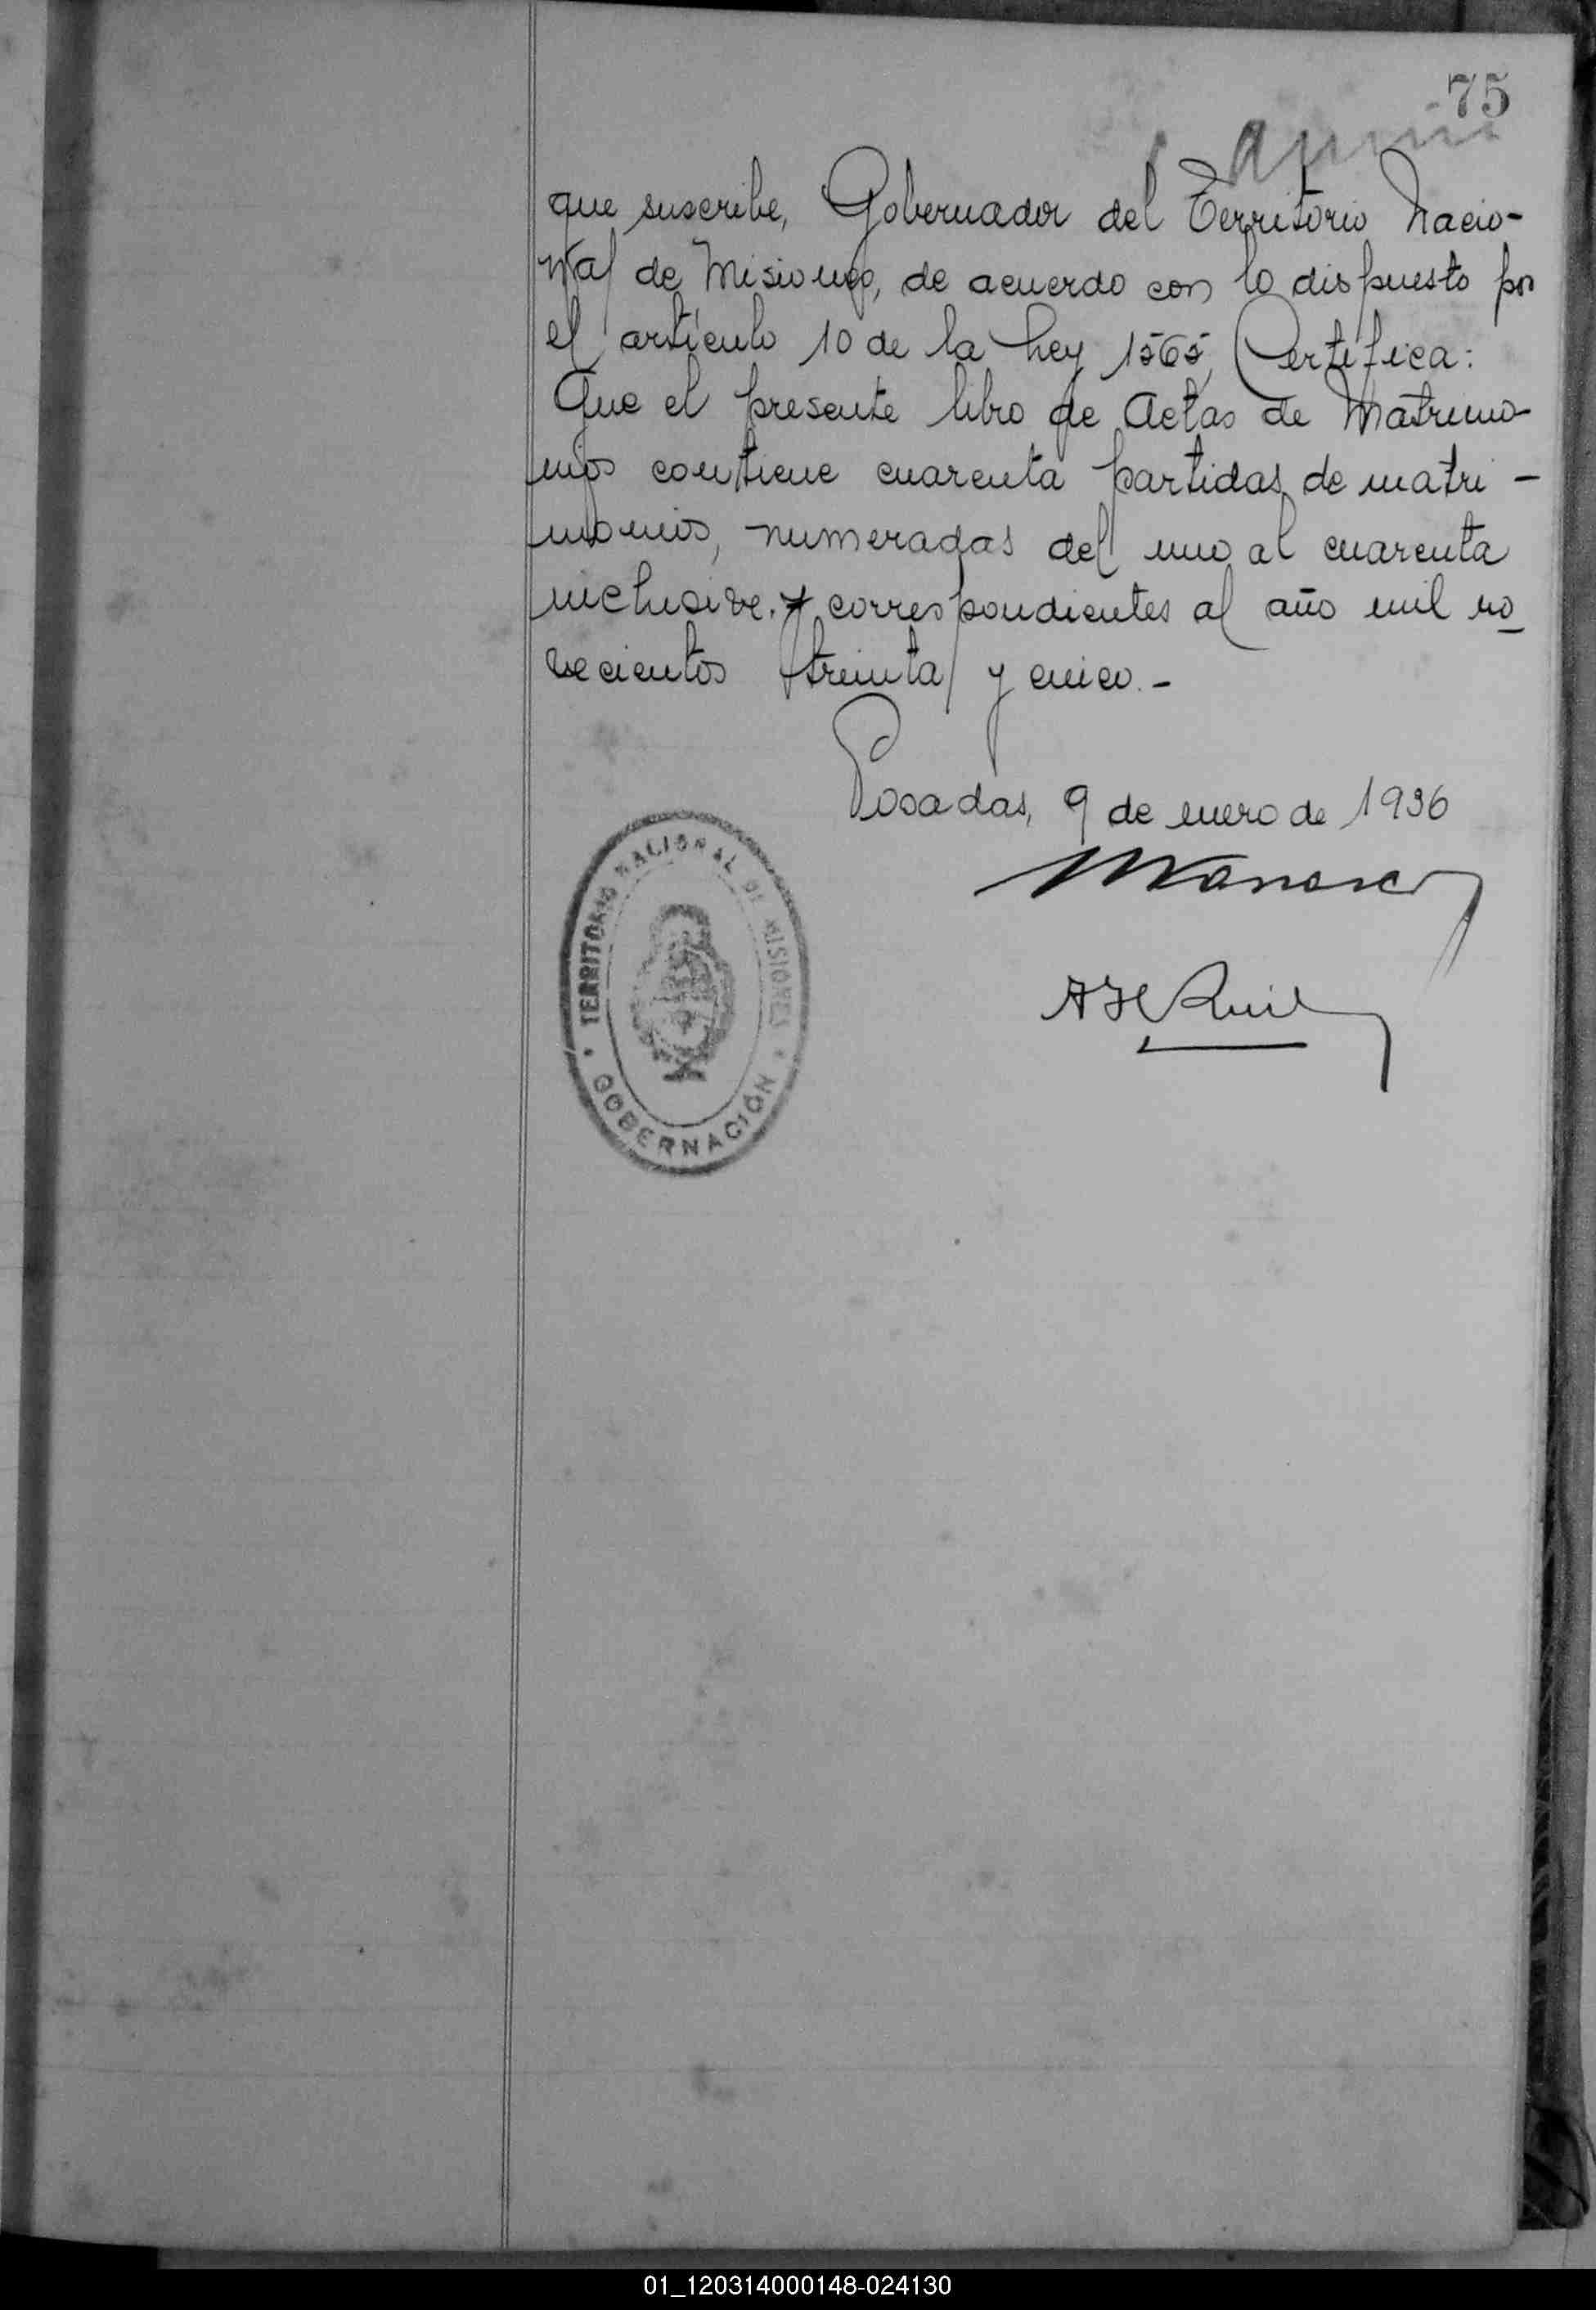 75
que suscribe, Gobernador del Territorio Nacio-
nal de Misiones, de acuerdo con lo dispuesto por
el artículo 10 de la Ley 1565, Certifica:
Que el presente libro de Actas de Matrimo-
nios contiene cuarenta partidas de matri-
monios, numeradas del uno al cuarenta
inclusive. y correspondientes al año mil no_
vecientos treinta y cinco.-
Posadas, 9 de enero de 1936
TERRITORIO NACIONAL DE MISIONES
GOBERNACIÓN
01_120314000148-024130